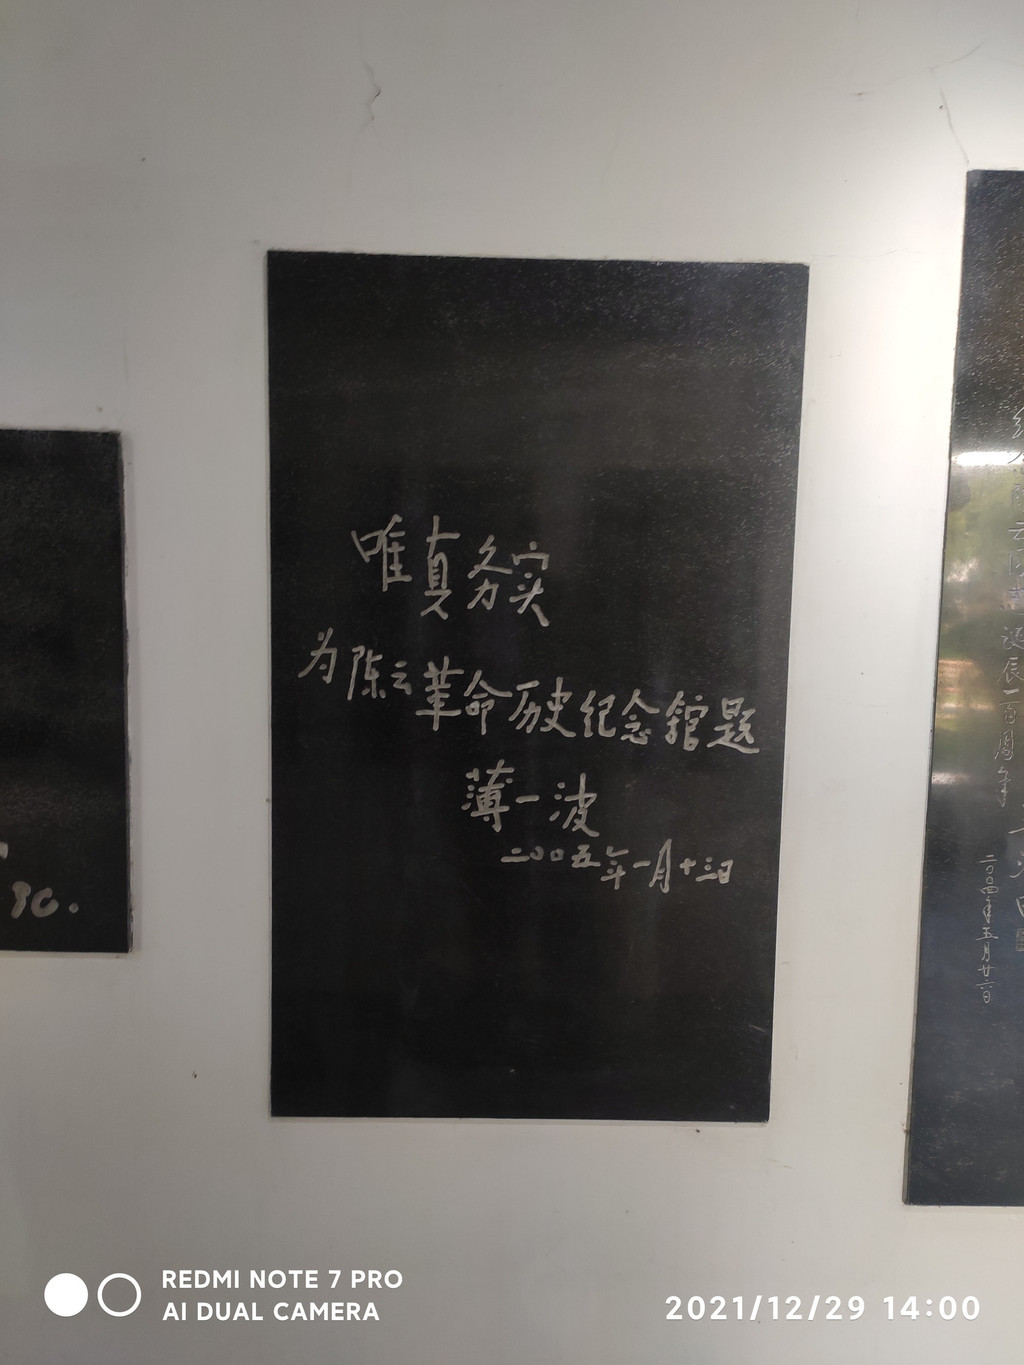 唯真务实
为陈云革命历史纪念馆题
薄一波
二〇〇五年一月十三日
云同志诞辰一百周年
二〇〇四年五月廿六日
80.
REDMI NOTE 7 PRO
AI DUAL CAMERA
2021/12/29 14:00